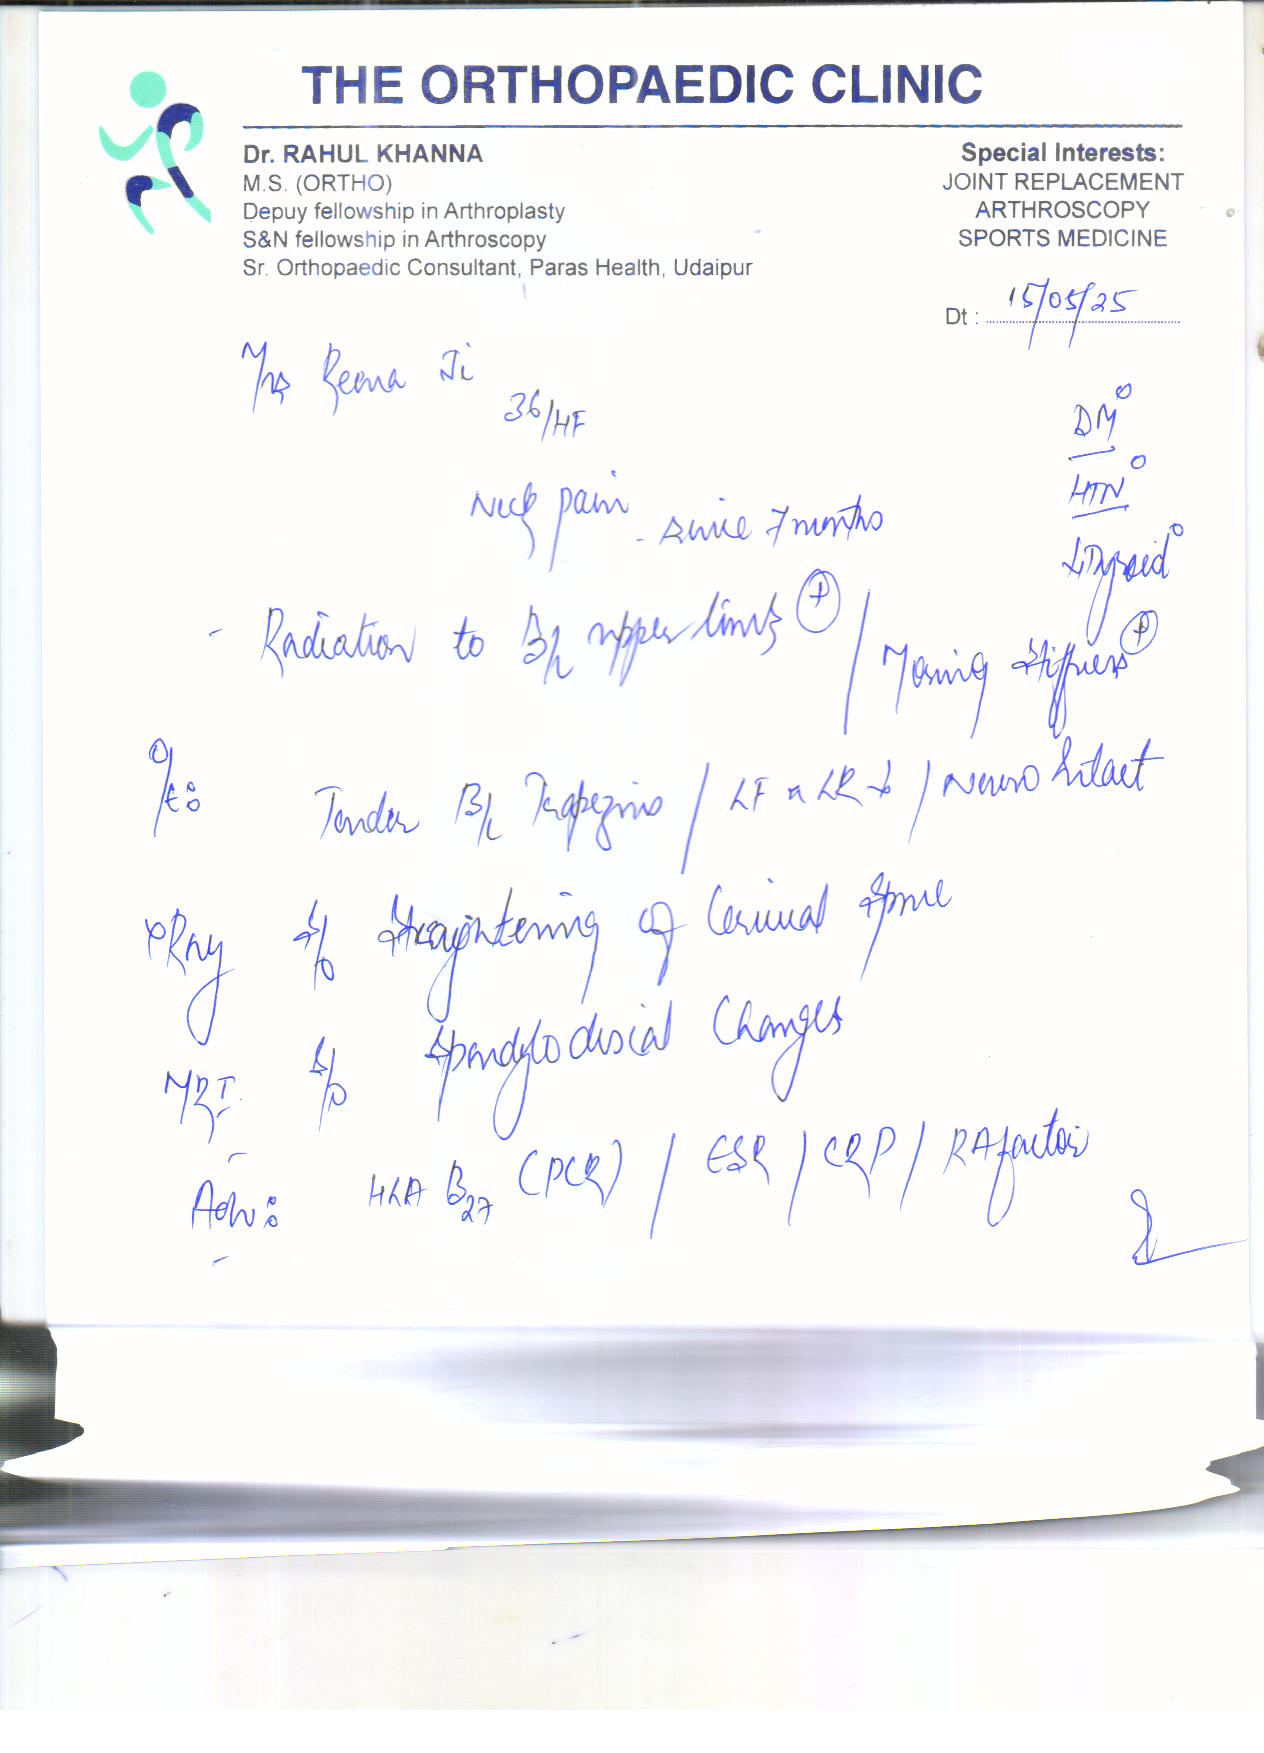 THE ORTHOPAEDIC CLINIC
Dr. RAHUL KHANNA
M.S. (ORTHO)
Depuy fellowship in Arthroplasty
S&N fellowship in Arthroscopy
Sr. Orthopaedic Consultant, Paras Health, Udaipur
Special Interests:
JOINT REPLACEMENT
ARTHROSCOPY
SPORTS MEDICINE
Dt : 15/05/25
Mrs Reena Ji
36/HF
DM°
HTN°
Thyroid°
Neck pain - since 7 months
- Radiation to B/L upper limbs ⊕ / Morning Stiffness ⊕
O/E: Tender B/L Trapezius / LF & LR ↓ / Neuro Intact
XRay S/O Straightening of Cervical Spine
MRI S/O Spondylodiscial Changes
Adv: HLA B27 (PCR) / ESR / CRP / RA factor